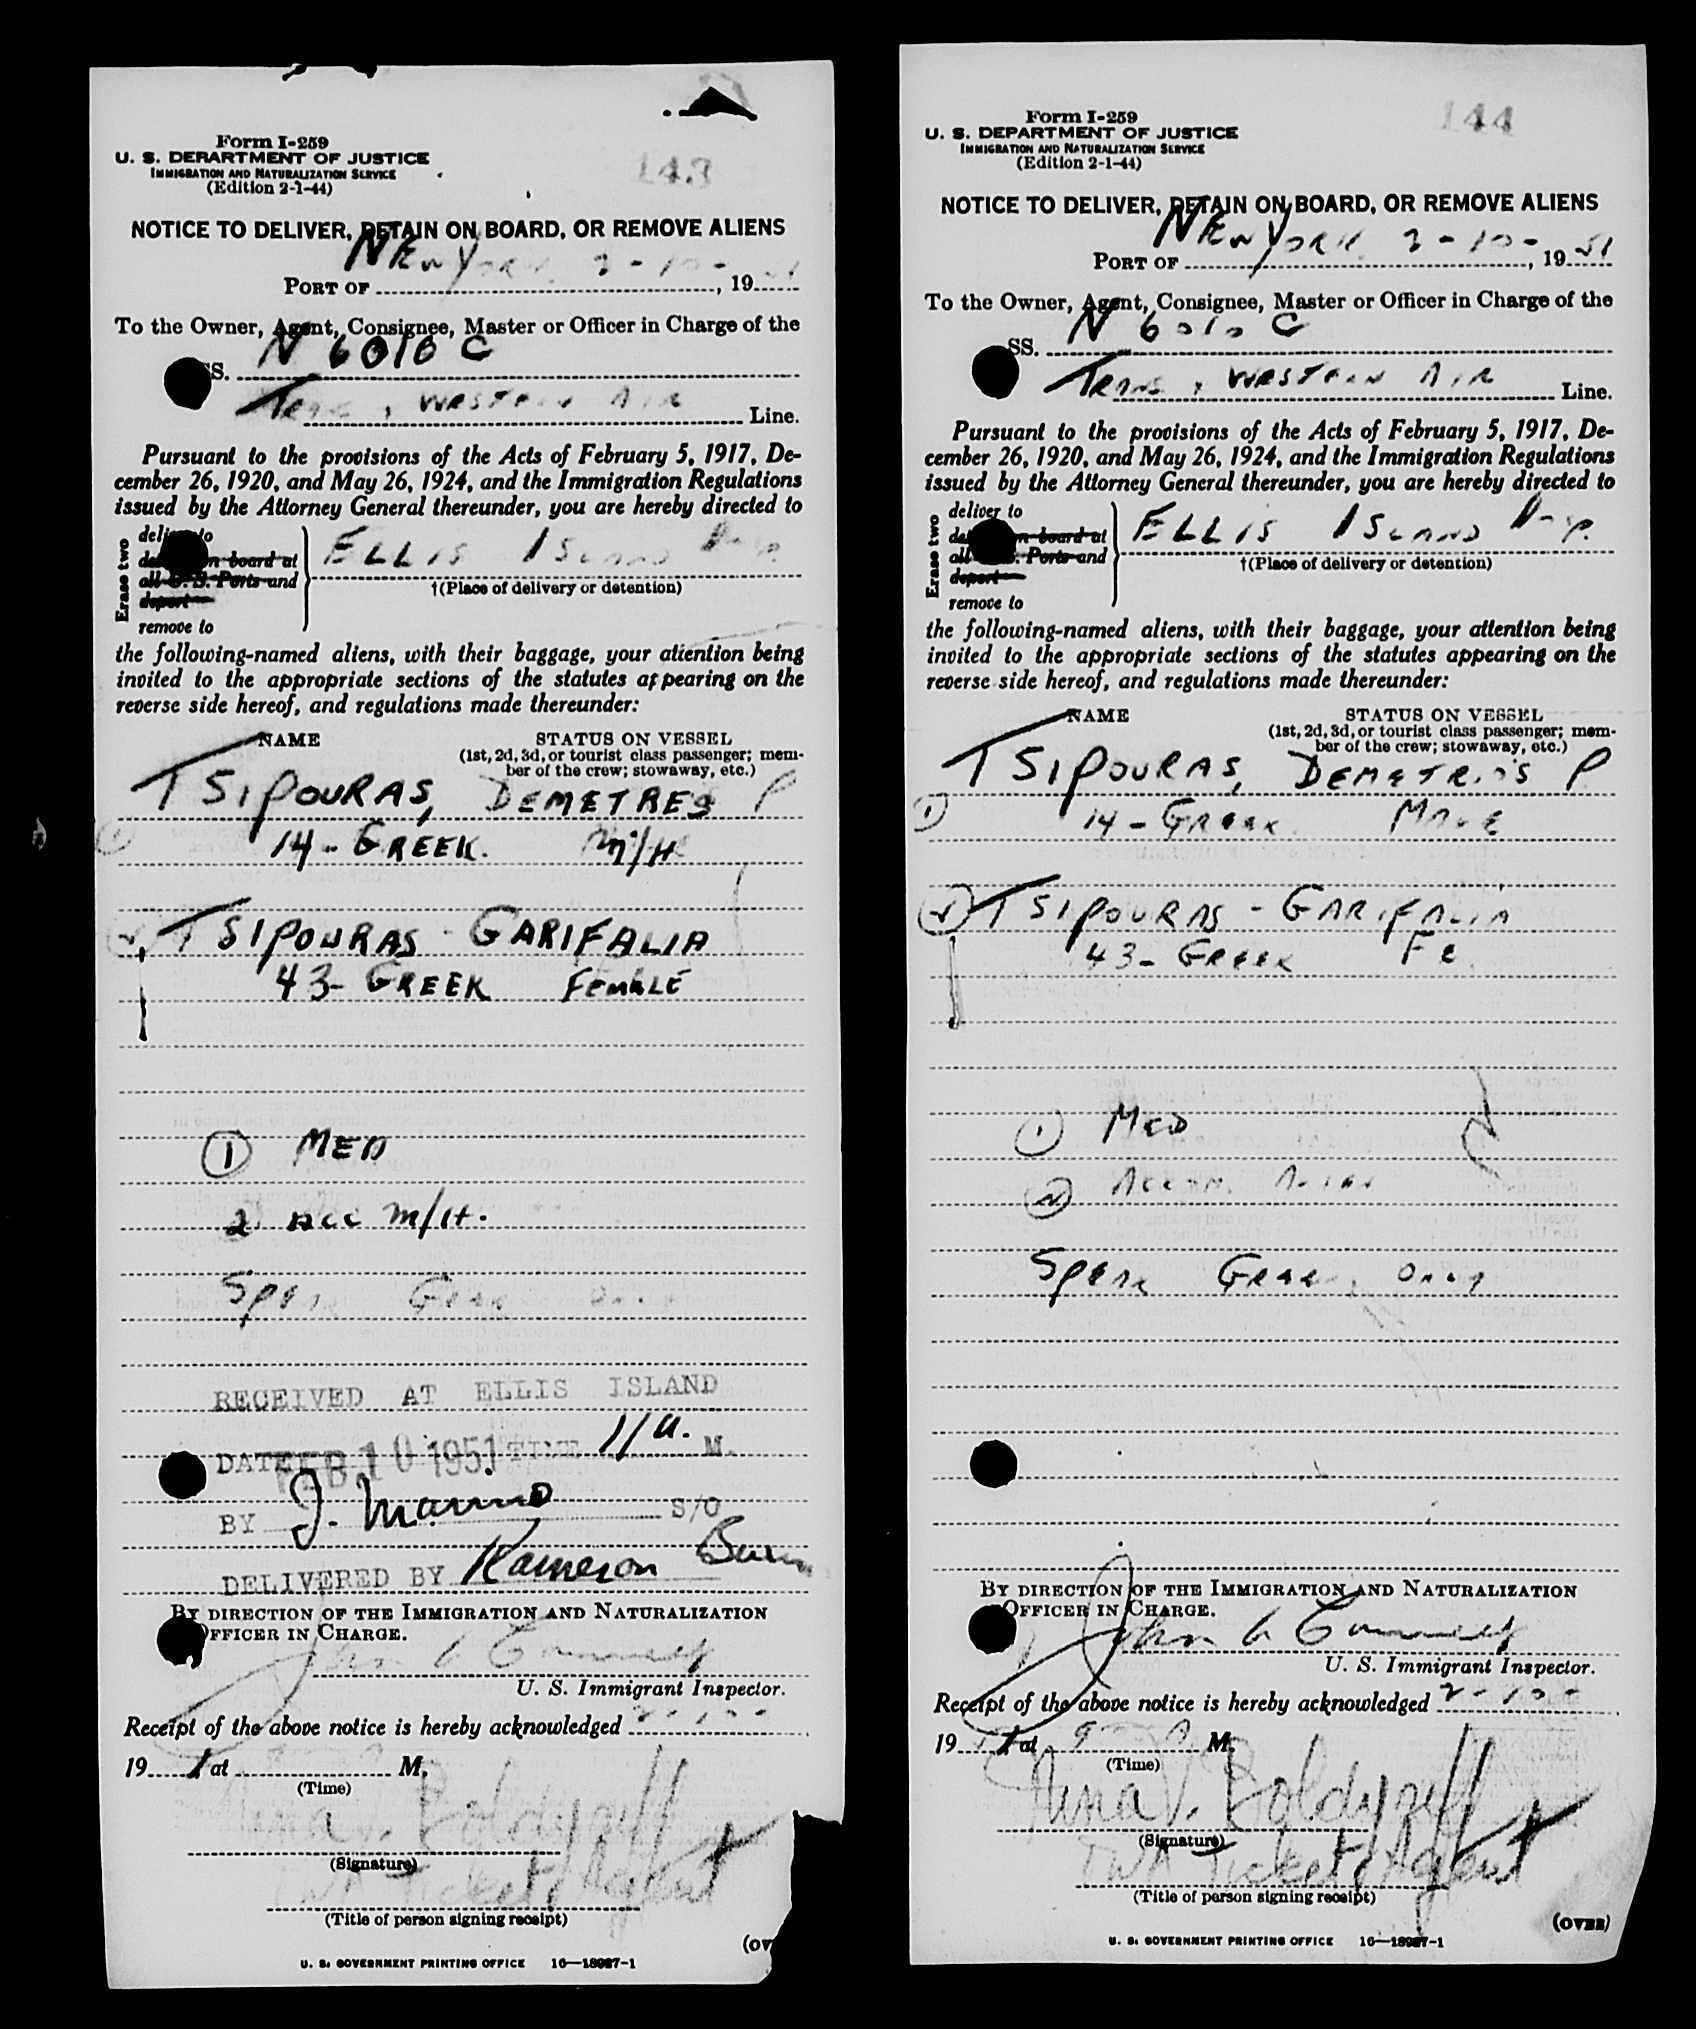 Form I-259
U. S. DEPARTMENT OF JUSTICE
IMMIGRATION AND NATURALIZATION SERVICE
(Edition 2-1-44)
143
NOTICE TO DELIVER, DETAIN ON BOARD, OR REMOVE ALIENS
NEW YORK 2-10-
PORT OF , 19 51
To the Owner, Agent, Consignee, Master or Officer in Charge of the
SS. N 6010 C
TRANS, WESTERN AIR Line.
Pursuant to the provisions of the Acts of February 5, 1917, De-
cember 26, 1920, and May 26, 1924, and the Immigration Regulations
issued by the Attorney General thereunder, you are hereby directed to
Erase two
deliver to
detain on board at
all U. S. Ports and
deport
remove to
ELLIS ISLAND
†(Place of delivery or detention)
the following-named aliens, with their baggage, your attention being
invited to the appropriate sections of the statutes appearing on the
reverse side hereof, and regulations made thereunder:
NAME STATUS ON VESSEL
(1st, 2d, 3d, or tourist class passenger; mem-
ber of the crew; stowaway, etc.)
TSIPOURAS, DEMETRES P
14 - GREEK. M/H
TSIPOURAS - GARIFALIA
43 - GREEK FEMALE
1 MED
2 ACC M/H.
SPEAK GREEK ONLY
RECEIVED AT ELLIS ISLAND
DATE FEB 10 1951 TIME 11/A. M.
BY J. Marino S/O
DELIVERED BY Kameron
BY DIRECTION OF THE IMMIGRATION AND NATURALIZATION
OFFICER IN CHARGE.
John
U. S. Immigrant Inspector.
Receipt of the above notice is hereby acknowledged 2-10-
19 51 at M.
(Time)
Nina V. Boldyreff
(Signature)
TWA Ticket Agent
(Title of person signing receipt)
(OV
U. S. GOVERNMENT PRINTING OFFICE 16—18987-1
Form I-259
U. S. DEPARTMENT OF JUSTICE
IMMIGRATION AND NATURALIZATION SERVICE
(Edition 2-1-44)
144
NOTICE TO DELIVER, DETAIN ON BOARD, OR REMOVE ALIENS
NEW YORK 2-10-
PORT OF , 19 51
To the Owner, Agent, Consignee, Master or Officer in Charge of the
SS. N 6010 C
TRANS, WESTERN AIR Line.
Pursuant to the provisions of the Acts of February 5, 1917, De-
cember 26, 1920, and May 26, 1924, and the Immigration Regulations
issued by the Attorney General thereunder, you are hereby directed to
Erase two
deliver to
detain on board at
all U. S. Ports and
deport
remove to
ELLIS ISLAND
†(Place of delivery or detention)
the following-named aliens, with their baggage, your attention being
invited to the appropriate sections of the statutes appearing on the
reverse side hereof, and regulations made thereunder:
NAME STATUS ON VESSEL
(1st, 2d, 3d, or tourist class passenger; mem-
ber of the crew; stowaway, etc.)
TSIPOURAS, DEMETRIOS P
1 14 - GREEK MALE
2 TSIPOURAS - GARIFALIA
43 - GREEK FE
1 MED
2 ACCOM.
SPEAK GREEK ONLY
BY DIRECTION OF THE IMMIGRATION AND NATURALIZATION
OFFICER IN CHARGE.
John
U. S. Immigrant Inspector.
Receipt of the above notice is hereby acknowledged 2-10-
19 51 at 9 A M.
(Time)
Nina V. Boldyreff
(Signature)
TWA Ticket Agent
(Title of person signing receipt)
(OVER)
U. S. GOVERNMENT PRINTING OFFICE 16—18987-1